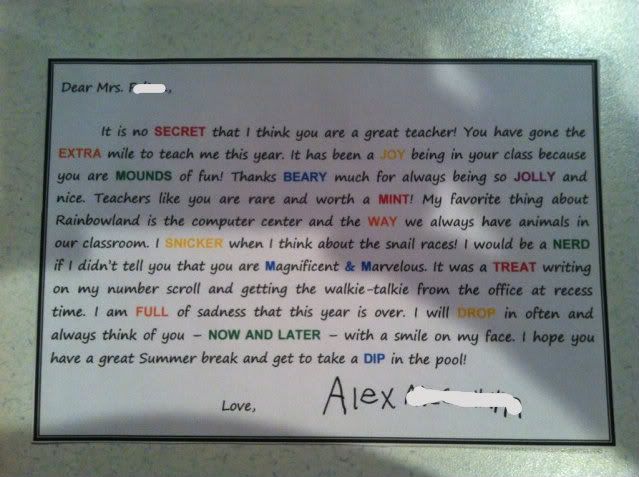 Dear Mrs.
It is no SECRET that I think you are a great teacher! You have gone the
EXTRA mile to teach me this year. It has been a JOY being in your class because
you are MOUNDS of fun! Thanks BEARY much for always being so JOLLY and
nice. Teachers like you are rare and worth a MINT! My favorite thing about
Rainbowland is the computer center and the WAY we always have animals in
our classroom. I SNICKER when I think about the snail races! I would be a NERD
if I didn't tell you that you are Magnificent & Marvelous. It was a TREAT writing
on my number scroll and getting the walkie-talkie from the office at recess
time. I am FULL of sadness that this year is over. I will DROP in often and
always think of you – NOW AND LATER – with a smile on my face. I hope you
have a great Summer break and get to take a DIP in the pool!
Love,
Alex